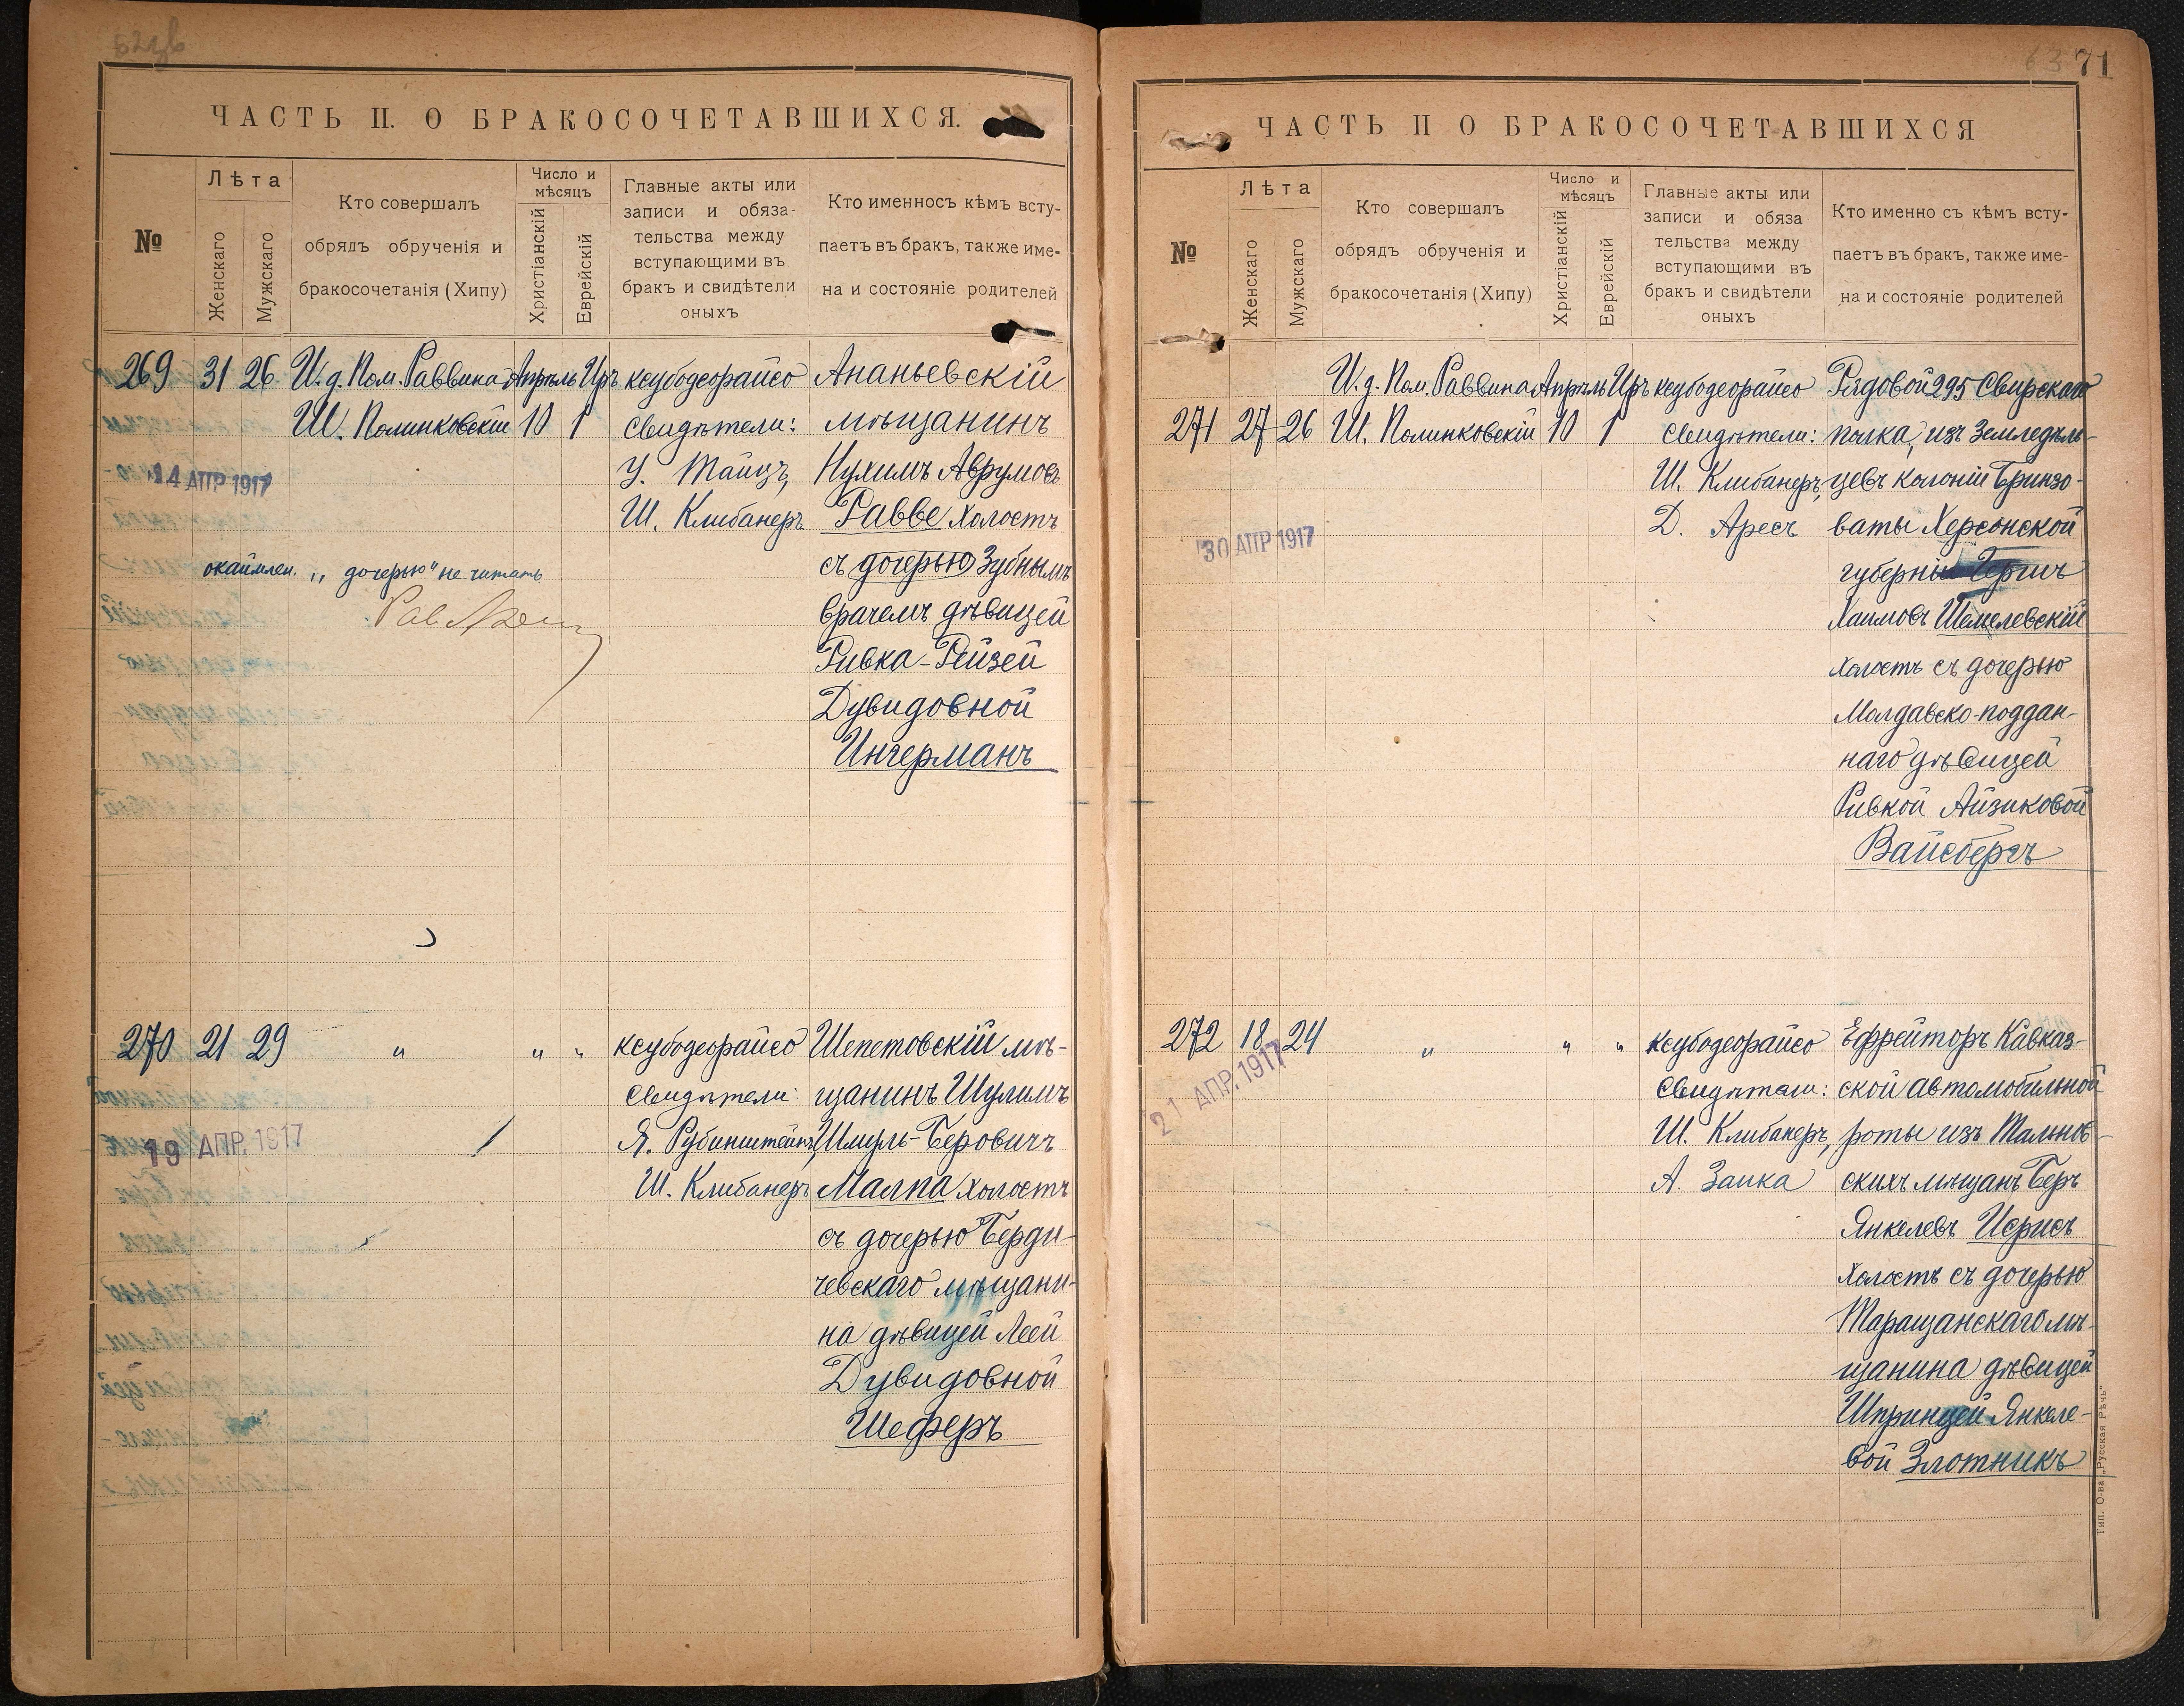 ЧАСТЬ II. О БРАКОСОЧЕТАВШИХСЯ.
№
Лѣта
Женскаго
Мужскаго
Кто совершалъ
обрядъ обрученія и
бракосочетанія (Хипу)
Число и
мѣсяцъ
Христіанскій
Еврейскій
Главные акты или
записи и обяза-
тельства между
вступающими въ
бракъ и свидѣтели
оныхъ
Кто именносъ кѣмъ всту-
паетъ въ бракъ, также име-
на и состояніе родителей
269 31 26
И.д. Пом. Раввина
Ш. Полинковскій
Апрѣль 10
Иръ 1
ксубодеорайсо
Свидѣтели:
У. Тайцъ,
Ш. Клибанеръ
Ананьевскій
мѣщанинъ
Нухимъ Аврумовъ
Раввe холостъ
съ дочерью Зубнымъ
врачемъ дѣвицей
Ривка-Рейзей
Дувидовной
Ингерманъ
14 АПР 1917
окаймлен. „дочерью" не читать
270 21 29
" " "
ксубодеорайсо
Свидѣтели:
Я. Рубинштейнъ,
Ш. Клибанеръ
Шепетовскій мѣ-
щанинъ Шулимъ
Шмуль-Беровичъ
Малпа холостъ
съ дочерью Берди-
чевскаго мѣщани-
на дѣвицей Леей
Дувидовной
Шеферъ
19 АПР. 1917
71
ЧАСТЬ II О БРАКОСОЧЕТАВШИХСЯ
№
Лѣта
Женскаго
Мужскаго
Кто совершалъ
обрядъ обрученія и
бракосочетанія (Хипу)
Число и
мѣсяцъ
Христіанскій
Еврейскій
Главные акты или
записи и обяза
тельства между
вступающими въ
бракъ и свидѣтели
оныхъ
Кто именно съ кѣмъ всту-
паетъ въ бракъ, также име-
на и состояніе родителей
271 27 26
И.д. Пом. Раввина
Ш. Полинковскій
Апрѣль 10
Иръ 1
ксубодеорайсо
Свидѣтели:
Ш. Клибанеръ,
Д. Аресъ
Рядовой 295 Свирскаго
полка, изъ Земледѣль-
цевъ колоніи Бринзо-
ваты Херсонской
губерніи
Хаимовъ Шемелевскій
холостъ съ дочерью
Молдавско-поддан-
наго дѣвицей
Ривкой Айзиковой
Вайсбергъ
30 АПР 1917
272 18 24
" " "
ксубодеорайсо
Свидѣтели:
Ш. Клибанеръ,
А. Заика
Ефрейторъ Кавказ-
ской автомобильной
роты изъ Тальнов-
скихъ мѣщанъ Беръ
Янкелевъ Исрисъ
холостъ съ дочерью
Таращанскаго мѣ-
щанина дѣвицей
Шпринцей Янкеле-
вой Злотникъ
21 АПР. 1917
Тип. О-ва „Русская Рѣчь"